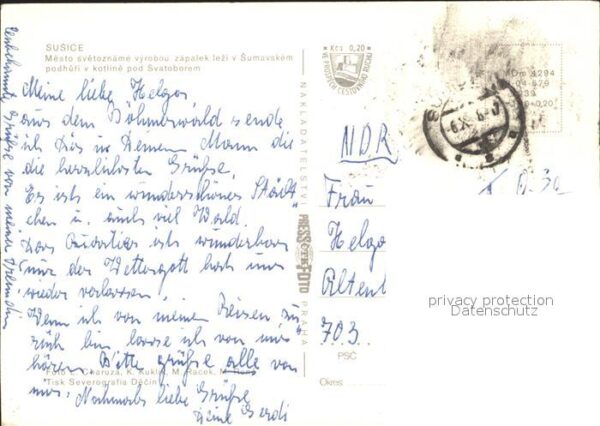 SUŠICE
Město světoznámé výrobou zápalek leží v Šumavském
podhůří v kotlině pod Svatoborem
Meine liebe Helga,
aus dem Böhmerwald sende
ich Dir u. Deinem Mann die
die herzlichsten Grüße.
Es ist ein wunderschönes Städt-
chen u. auch viel Wald.
Das Quartier ist wunderbar
nur der Wettergott hat uns
wieder verlassen.
Wenn ich von meinen Reisen zu-
rück bin lasse ich von mir
hören. Bitte grüße alle von
mir.
Nochmals liebe Grüße
Deine Gerdi
Foto L. Charuza, K. Kuklík, M. Raček, M.
Tisk Severografia Děčín
Grüße von meiner Freundin
NAKLADATELSTVÍ
PRESSFOTO
PRAHA
Kčs 0,20
VE PROSPĚCH CESTOVNÍHO RUCHU
NDR
Frau
Helga
Altenb
703
PSČ
Okres
privacy protection
Datenschutz